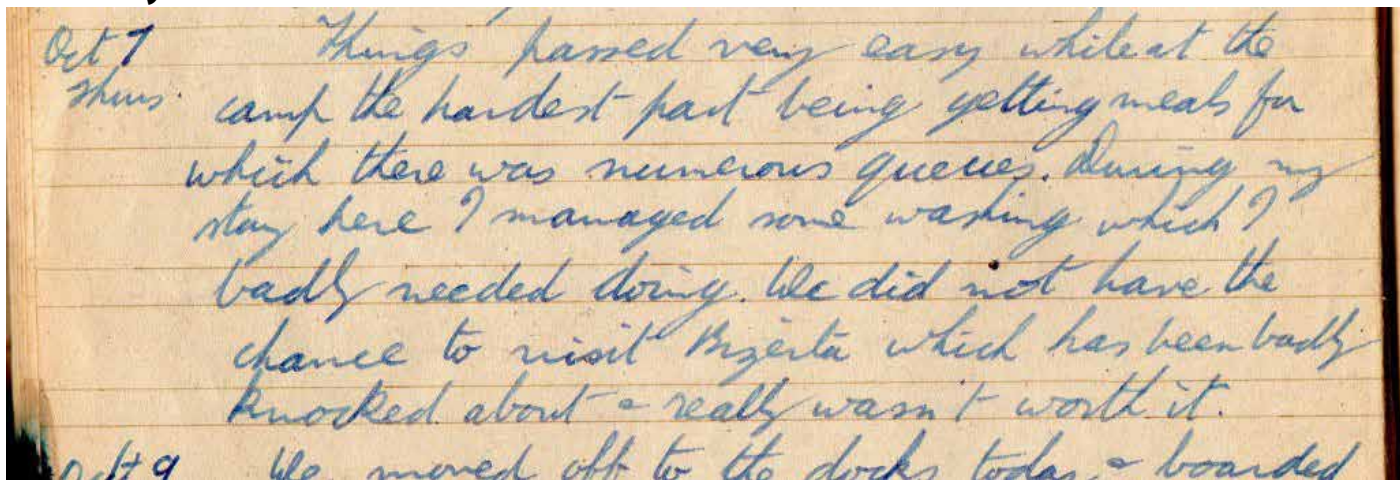 Oct 7 Things passed very easy while at the
Thurs. camp the hardest part being getting meals for
which there was numerous queues. During my
stay here I managed some washing which I
badly needed doing. We did not have the
chance to visit Bizerta which has been badly
knocked about & really wasn't worth it.
Oct 9 We moved off to the docks today & boarded